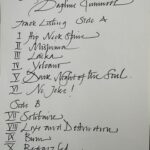 Daphne Guinness
Track Listing Side A
I Hip Neck Spine
II Mishima
III Laika
IV Volcano
V Dark Night of the Soul
VI No Joke!
Side B
VII Solitaire
VIII Love and Destruction
IX Burn
X